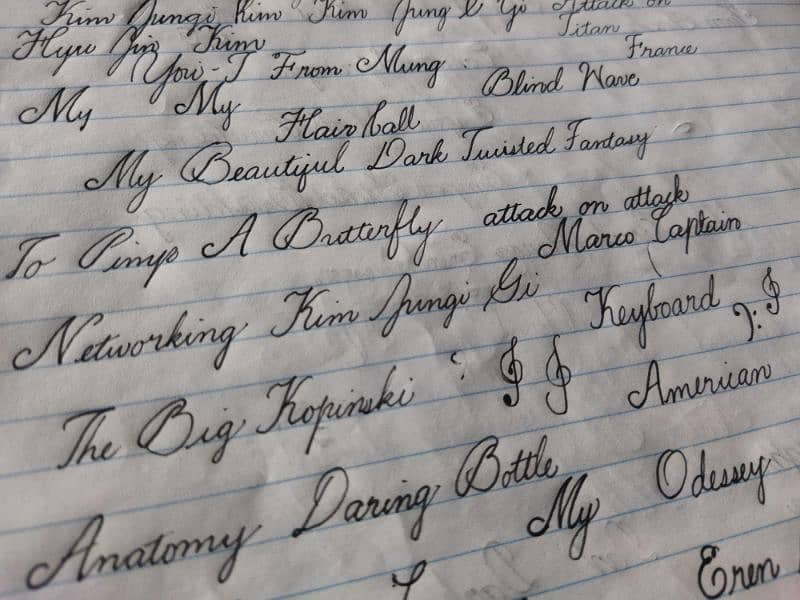 Kim Jungi Kim Kim Jung Gi Attack on
Titan
Hyun Jin Kim France
You-I From Mung
My My Blind Wave
Hairball
My Beautiful Dark Twisted Fantasy
To Pimp A Butterfly attack on attack
Marco Captain
Networking Kim Jungi Gi
Keyboard
The Big Kopinski American
Anatomy Daring Bottle
My Odessey
Eren